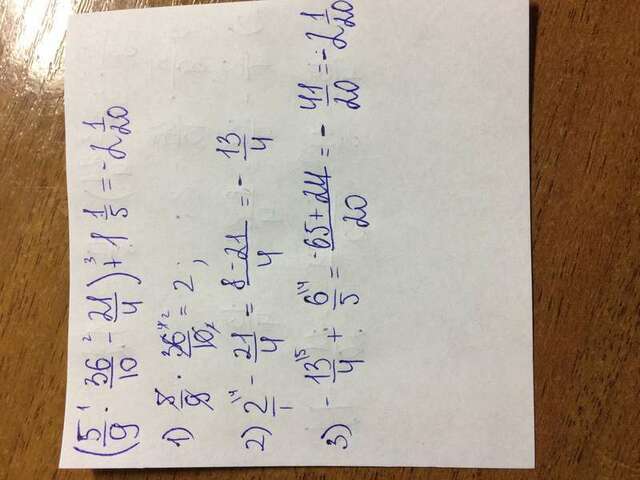 (5/9 ·¹ 36/10 -² 21/4) +³ 1 1/5 = -2 1/20
1) 5/9 · 36/10 = 2;
2) 2/1 - 21/4 = 8-21/4 = - 13/4
3) - 13/4 + 6/5 = -65+24/20 = - 41/20 = -2 1/20